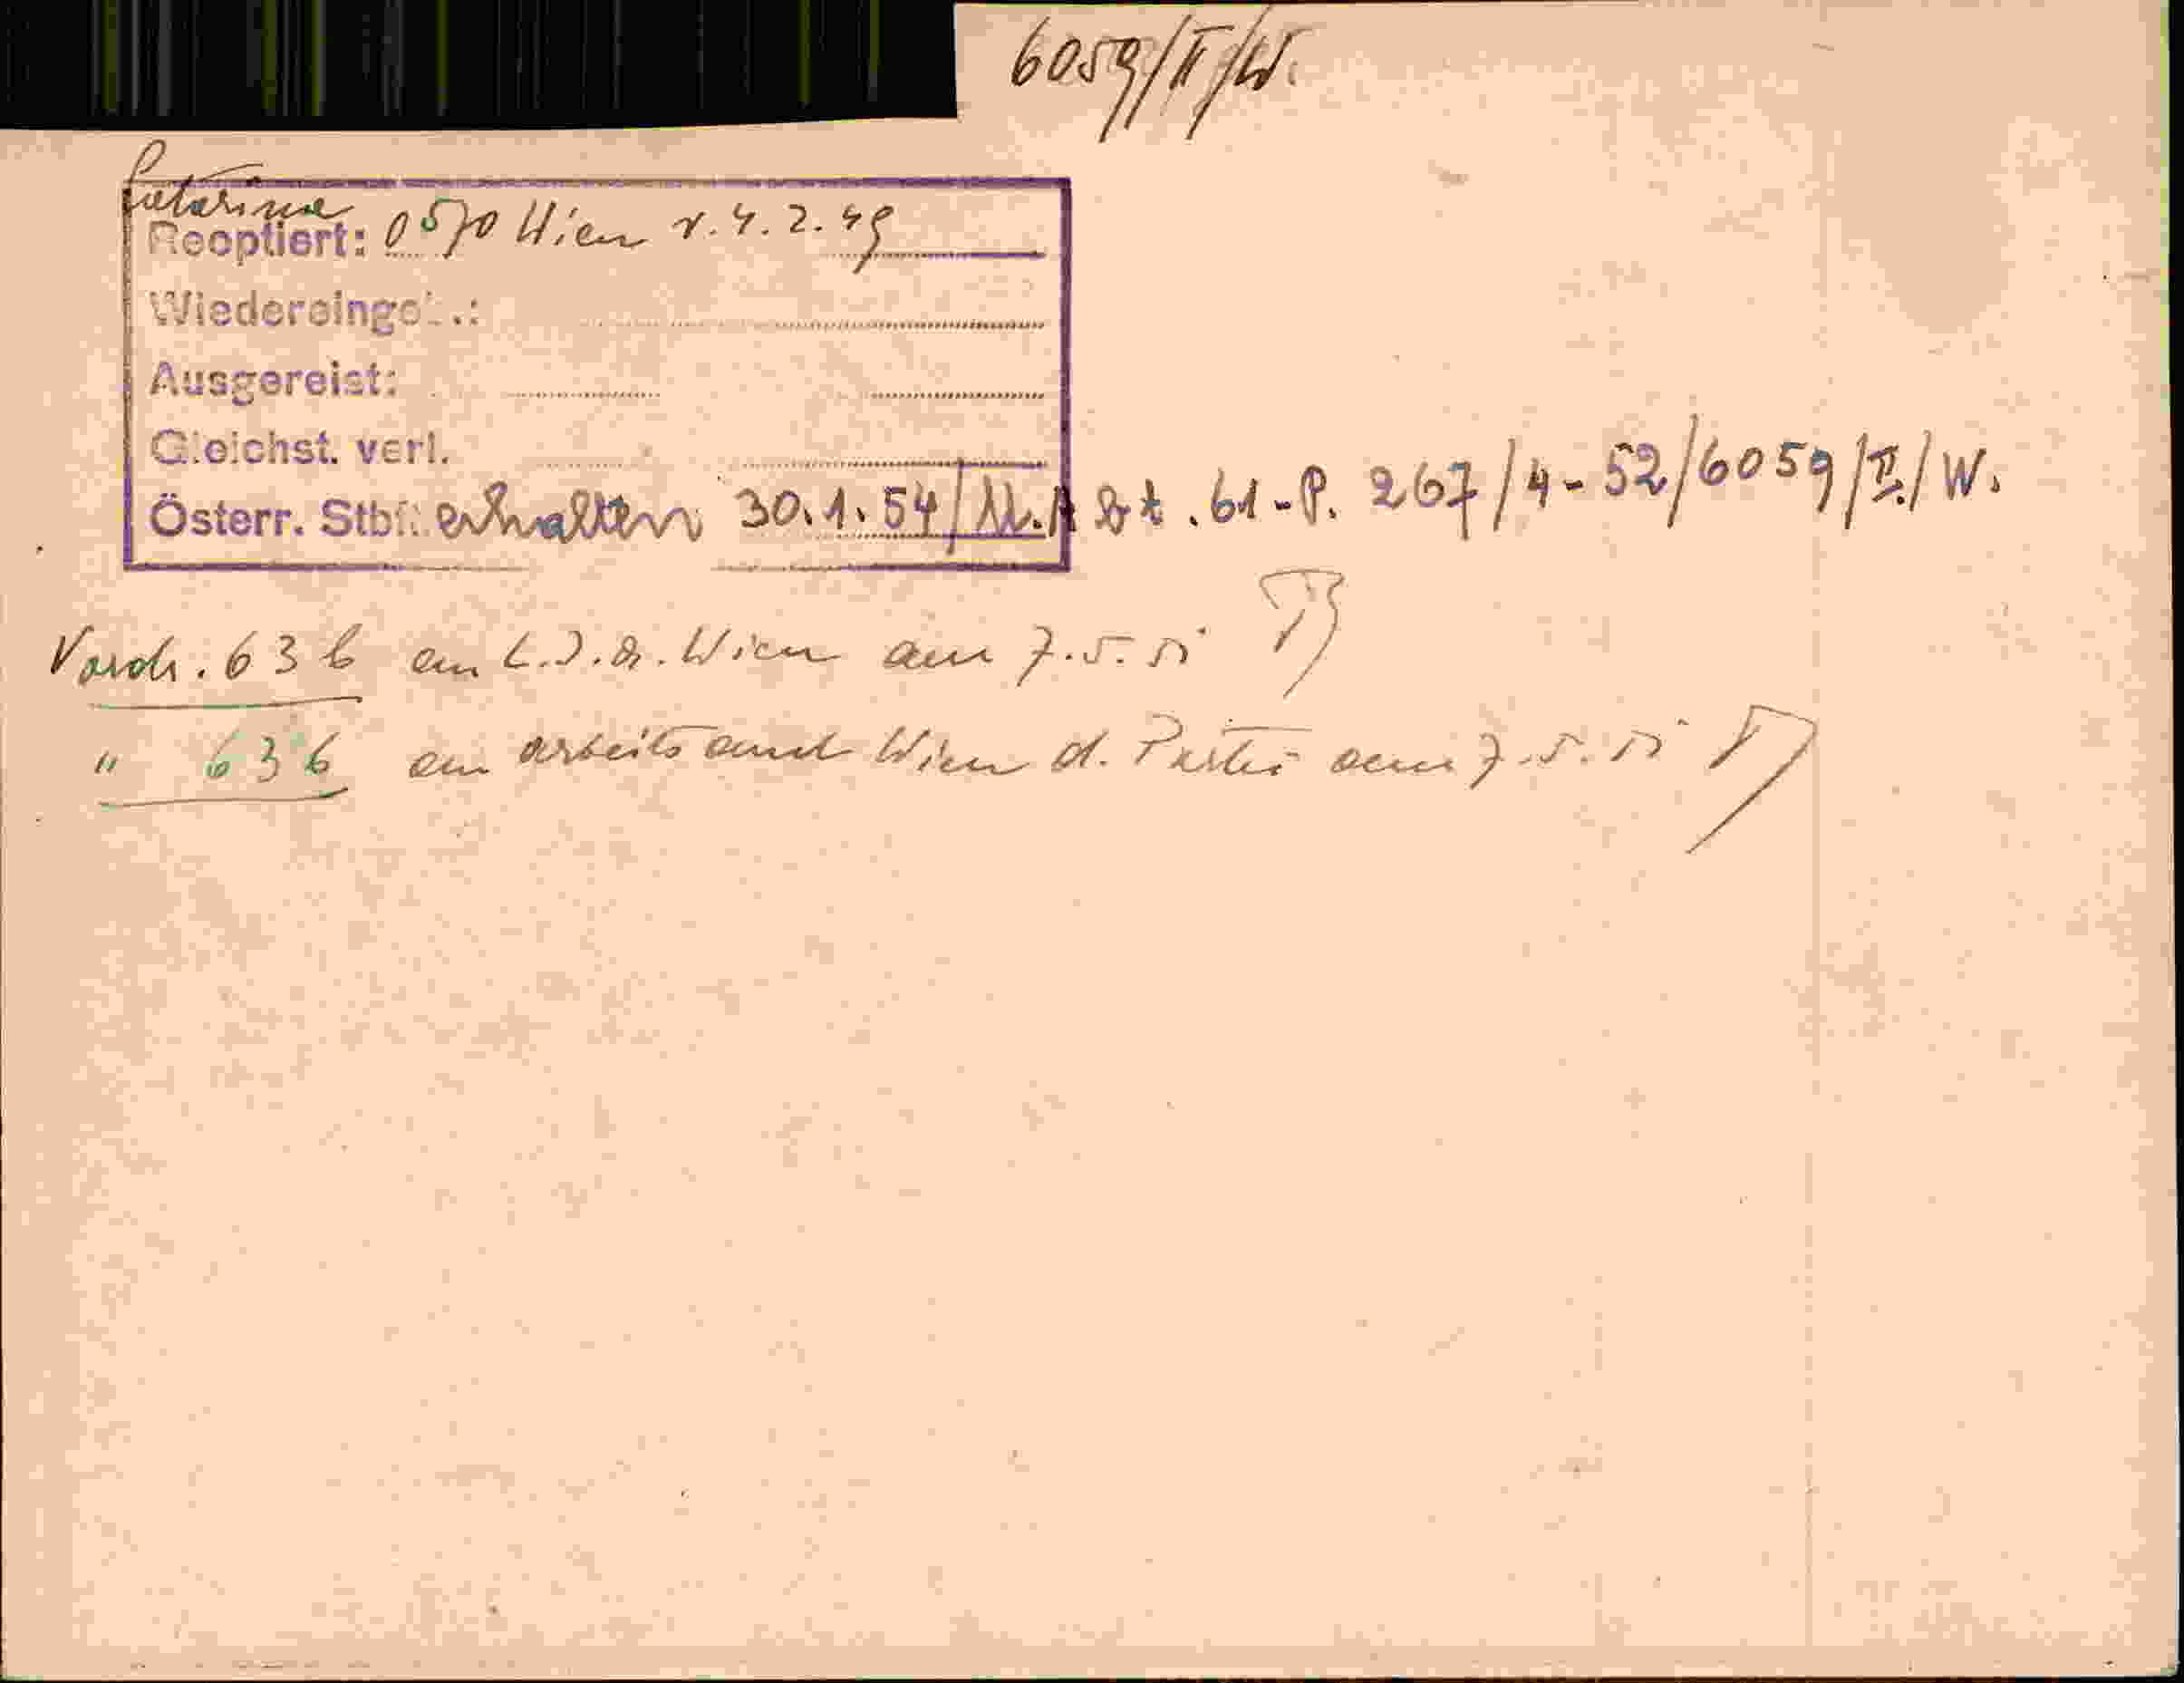 6059/II/W.
Reoptiert: 0570 Wien v. 4.2.49
Wiedereingeb.:
Ausgereist:
Gleichst. verl.
Österr. Stbf. erhalten 30.1.54/M.A bt. 61-P. 267/4-52/6059/II./W.
Vordr. 63b an L.J.A. Wien am 7.5.51
" 63b an Arbeitsamt Wien d. Partei am 7.5.51